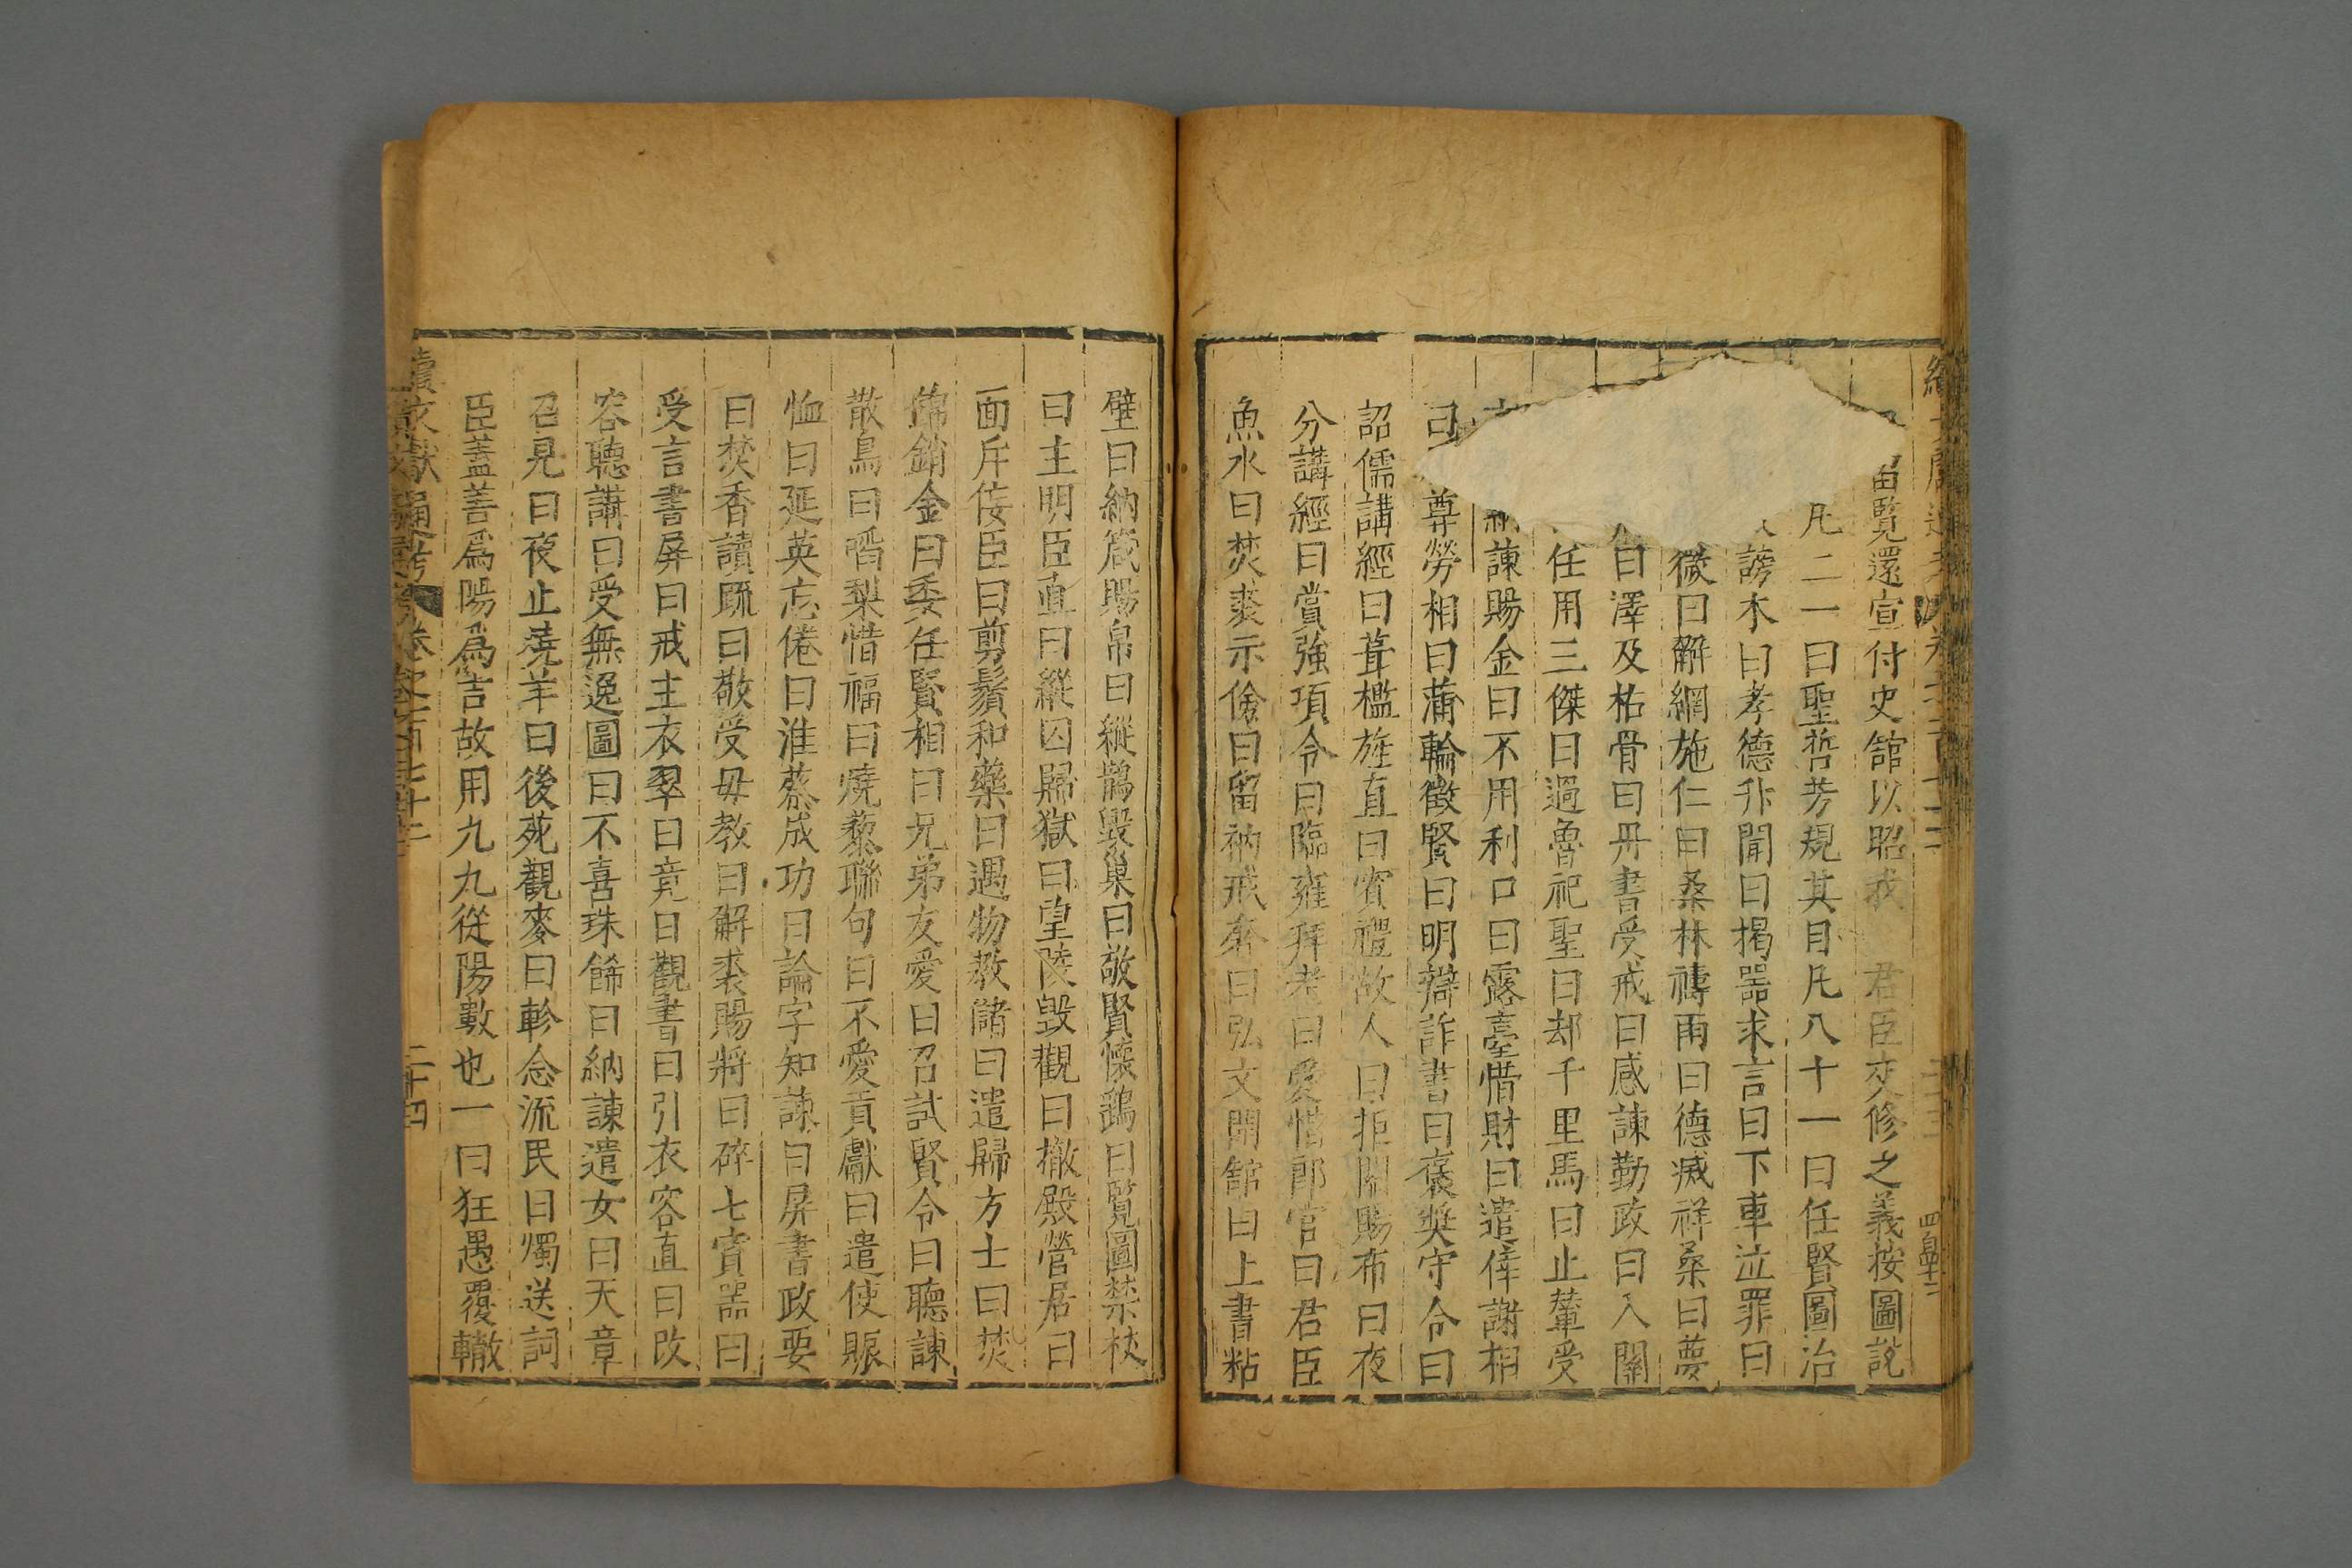 留覽還宣付史館以昭我 君臣交修之義按圖說
凡二一曰聖哲芳規其目凡八十一曰任賢圖治
謗木曰孝德升聞曰揭器求言曰下車泣罪曰
微曰解網施仁曰桑林禱雨曰德滅祥桑曰夢
曰澤及枯骨曰丹書受戒曰感諫勤政曰入關
任用三傑曰過魯祀聖曰却千里馬曰止輦受
諫賜金曰不用利口曰露臺惜財曰遣倖謝相
尊勞相曰蒲輪徵賢曰明辯詐書曰褒奬守令曰
詔儒講經曰葺檻旌直曰賓禮故人曰拒關賜布曰夜
分講經曰賞強項令曰臨雍拜老曰愛惜郎官曰君臣
魚水曰焚裘示儉曰留衲戒奢曰弘文開館曰上書粘
壁曰納箴賜帛曰縱鵲毀巢曰敬賢懷鷂曰覽圖禁杖
曰主明臣直曰縱囚歸獄曰望陵毀觀曰撤殿營居曰
面斥佞臣曰剪鬚和藥曰遇物教儲曰遣歸方士曰焚
錦銷金曰委任賢相曰兄弟友愛曰召試賢令曰聽諫
散鳥曰啗梨惜福曰燒藜聯句曰不愛貢獻曰遣使賑
恤曰延英忘倦曰淮蔡成功曰論字知諫曰屏書政要
曰焚香讀疏曰敬受母教曰解裘賜將曰碎七寳器曰
受言書屏曰戒主衣翠曰竟日觀書曰引衣容直曰改
容聽講曰受無逸圖曰不喜珠飾曰納諫遣女曰天章
召見曰夜止燒羊曰後苑觀麥曰軫念流民曰燭送詞
臣蓋善爲陽爲吉故用九九從陽數也一曰狂愚覆轍
續文獻通考 卷之二百七十二 二十四